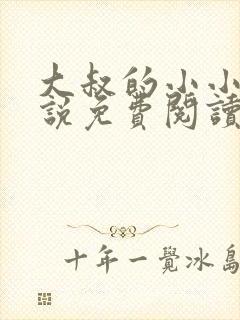 大叔的小小
說免費閱讀
十年一覺冰島